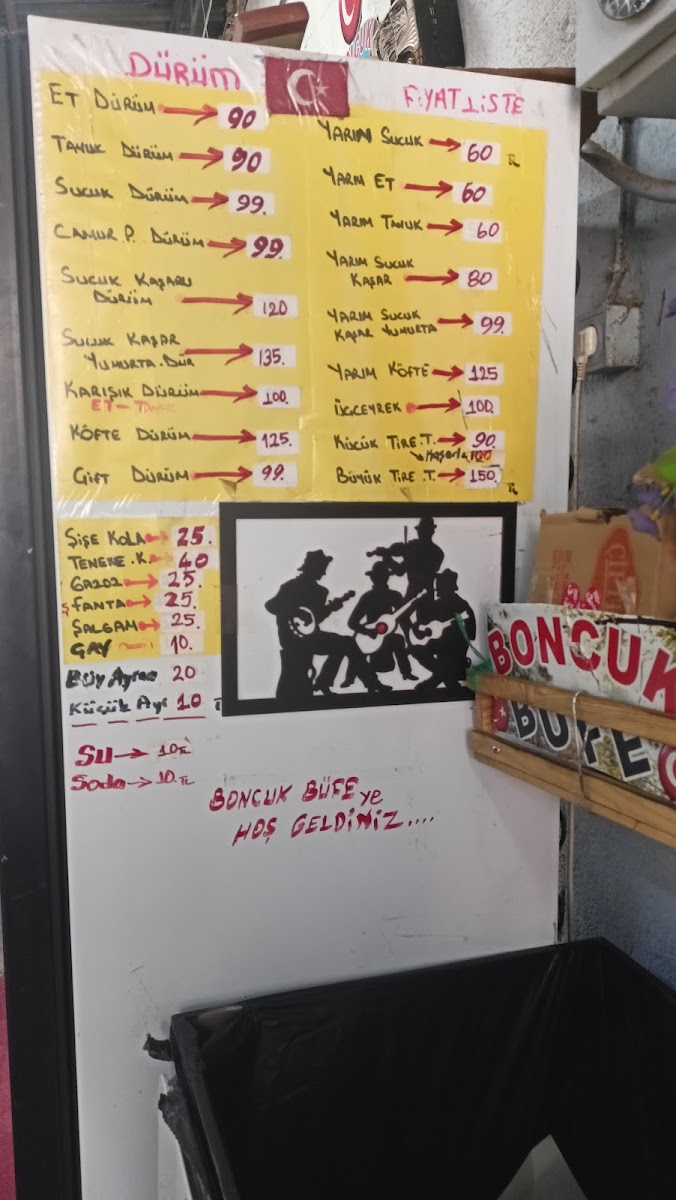 DÜRÜM
ET DÜRÜM 90
TAVUK DÜRÜM 90
SUCUK DÜRÜM 99.
CAMUR.P. DÜRÜM 99.
SUCUK KAŞARLI
DÜRÜM 120
SUCUK KAŞAR
YUMURTA.DÜR 135.
KARIŞIK DÜRÜM 100.
ET-TAVUK
KÖFTE DÜRÜM 125.
GİFT DÜRÜM 99.
FİYAT LİSTE
YARIM SUCUK 60 TL
YARIM ET 60
YARIM TAVUK 60
YARIM SUCUK
KAŞAR 80
YARIM SUCUK
KAŞAR YUMURTA 99.
YARIM KÖFTE 125
ÜÇÇEYREK 100.
KÜÇÜK TİRE.T. 90.
Kaşarlı 100
BÜYÜK TİRE.T. 150. TL
ŞİŞE KOLA 25.
TENEKE.K. 40
GAZOZ 25.
FANTA 25.
ŞALGAM 25.
ÇAY 10.
BÜY Ayran 20
Küçük Ayr 10
SU 10 TL
Soda 10. TL
BONCUK BÜFE ye
HOŞ GELDİNİZ....
BONCUK
BÜFE